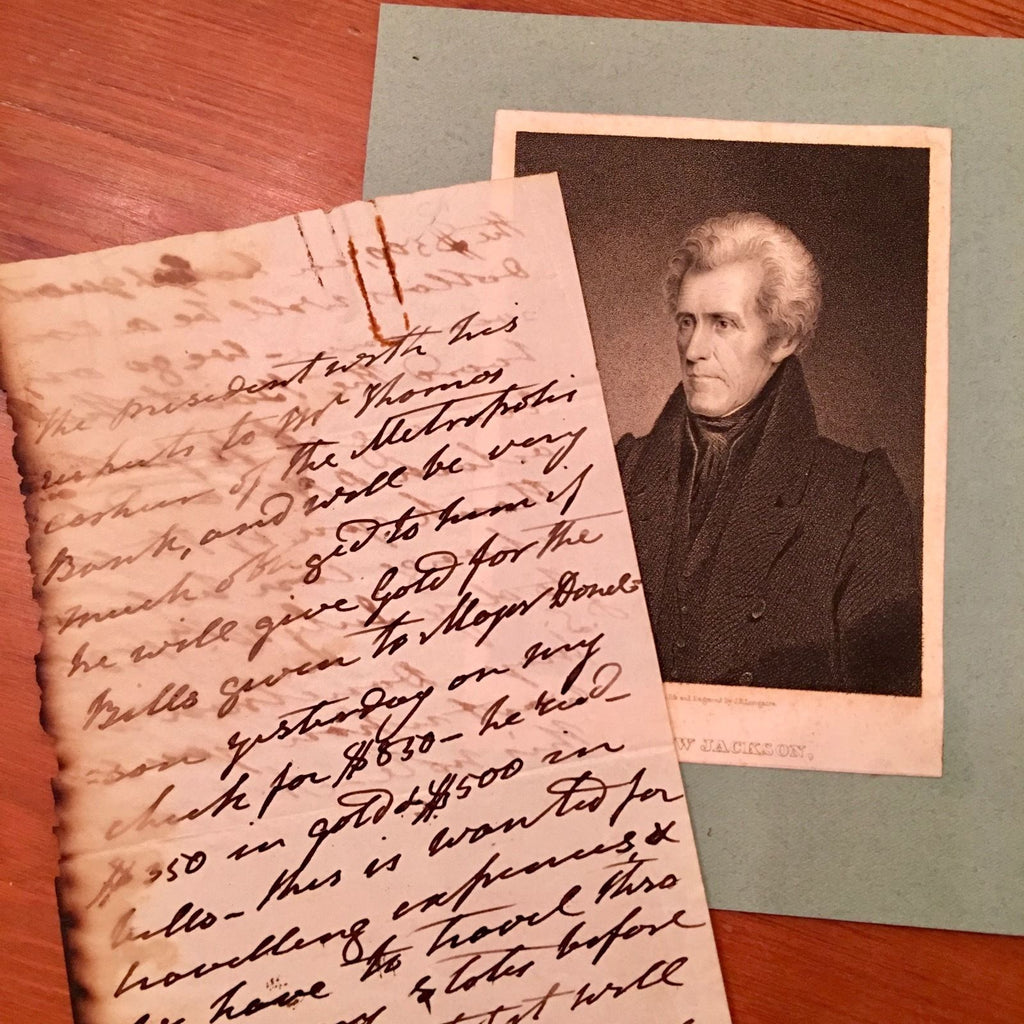 The President with his
respects to Mr Thomas
cashier of the Metropolis
Bank, and will be very
much obliged to him if
he will give Gold for the
Bills given to Major Donel-
-son yesterday on my
check for $850 - he recd-
$350 in gold & $500 in
bills - this is wanted for
travelling expences, &
we have to travel thro
states before
will
W JACKSON,